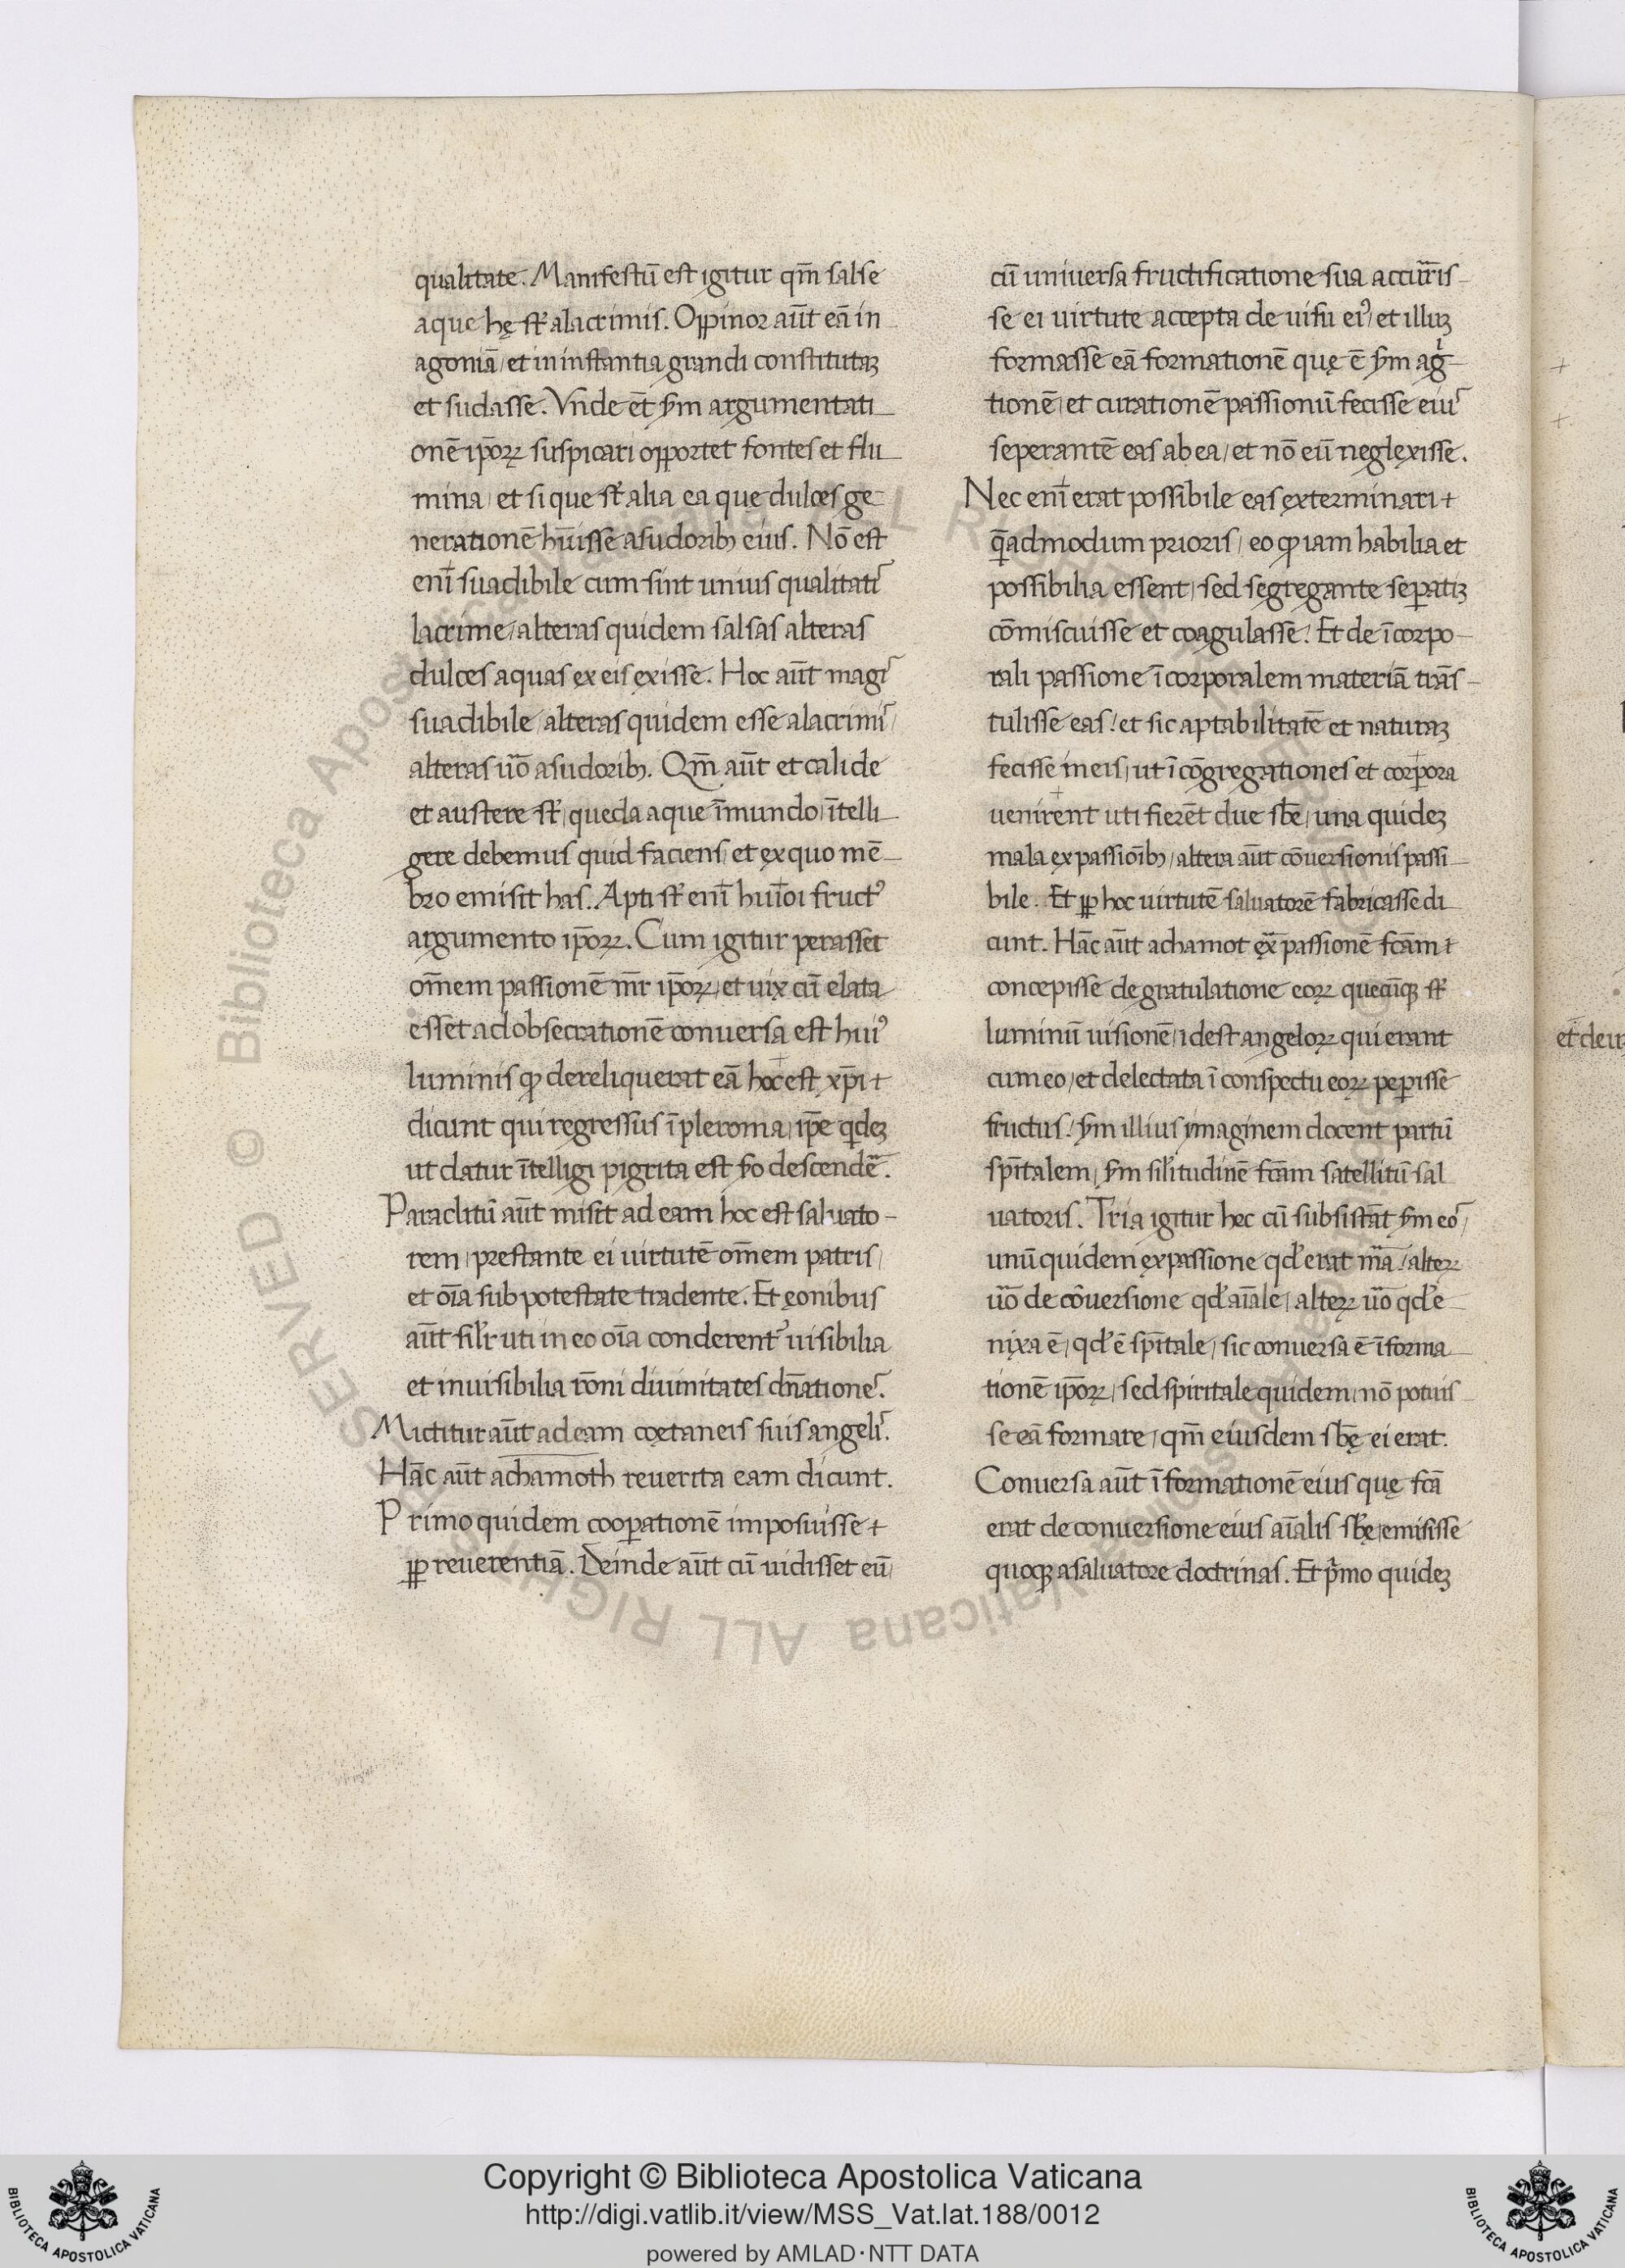 qualitate. Manifestū est igitur qm̄ salse
aque hę st̄ a lacrimis. Oppinor aūt eā in
agoniā, et in instantia grandi constitutaꝫ
et sudasse. Vnde et̄ ẜm argumentati
onē ip̄oꝝ suspicari opportet fontes et flu
mina, et si que st̄ alia ea que dulces ge-
nerationē hūisse a sudoribꝫ eius. Nō est
enī suadibile cum sint unius qualitatis
lacrime, alteras quidem salsas alteras
dulces aquas ex eis exisse. Hoc aūt magis
suadibile, alteras quidem esse a lacrimis,
alteras ūo a sudoribꝫ. Qm̄ aūt et calide
et austere st̄, queda aque ī mundo, ītelli
gere debemus quid faciens, et ex quo mē
bro emisit has. Apti st̄ enī huī̄oi fructꝰ
argumento ip̄oꝝ. Cum igitur perasset
om̄em passionē mr̄ ip̄oꝝ, et uix cū elata
esset ad obsecrationē conuersa est huiꝰ
luminis qꝫ dereliquerat eā hoc est xp̄i +
dicunt qui regressus ī pleroma, ip̄e qdeꝫ
ut datur ītelligi pigrita est ẜo descendē.
Paraclitū aūt misit ad eam hoc est saluato-
rem, prestante ei uirtutē om̄em patris,
et oīa sub potestate tradente. Et ęonibus
aūt sil'r uti in eo oīa conderentᷣ uisibilia
et inuisibilia rōni diuinitates dn̄ationes.
Mictitur aūt ad eam coętaneis suis angelis.
Hāc aūt achamoth reuerita eam dicunt.
Primo quidem cooꝑationē imposuisse +
ꝓꝑ reuerentiā. Deinde aūt cū uidisset eū,
cū uniuersa fructificatione sua accurris-
se ei uirtute accepta de uisu eiꝰ, et illuꝫ
formasse eā formationē quę ē ẜm ag-
tionē, et curationē passionū fecisse eius
seperantē eas ab ea, et nō eū neglexisse.
Nec enī erat possibile eas exterminari +
q̄admodum prioris, eo qꝫ iam habilia et
possibilia essent, sed segregante seꝑatiꝫ
cōmiscuisse et coagulasse. Et de īcorpo-
rali passione ī corporalem materiā trās-
tulisse eas. et sic aptabilitatē et naturaꝫ
fecisse in eis, ut ī cōgregationes et corpora
uenirent uti fierēt due sb̄e, una quideꝫ
mala ex passioībꝫ, altera aūt cōuersionis passi
bile. Et ꝓꝑ hoc uirtutē saluatorē fabricasse di
cunt. Hāc aūt achamot ex̄ passionē fc̄am +
concepisse de gratulatione eoꝝ quecūqꝫ st̄
luminū uisionē, idest angeloꝝ qui erant
cum eo, et delectata ī conspectu eoꝝ peꝑisse
fructus. ẜm illius ymaginem docent partū
sp̄italem, ẜm sil'itudinē fc̄am satellitū sal
uatoris. Tria igitur hec cū subsistāt ẜm eos,
unū quidem ex passione qd' erat mā. alteꝝ
ūo de cōuersione qd' aīale, alteꝝ ūo qd' e
nixa ē, qd' ē sp̄itale, sic conuersa ē ī forma
tionē ip̄oꝝ, sed spiritale quidem, nō potuis
se eā formare, qm̄ eiusdem sb̄ę ei erat.
Conuersa aūt ī formationē eius quę fc̄a
erat de conuersione eius aīalis sb̄ę, emisisse
quoqꝫ a saluatore doctrinas. Et p̄mo quideꝫ
et deu
Copyright © Biblioteca Apostolica Vaticana
http://digi.vatlib.it/view/MSS_Vat.lat.188/0012
powered by AMLAD·NTT DATA
BIBLIOTECA APOSTOLICA VATICANA
BIBLIOTECA APOSTOLICA VATICANA